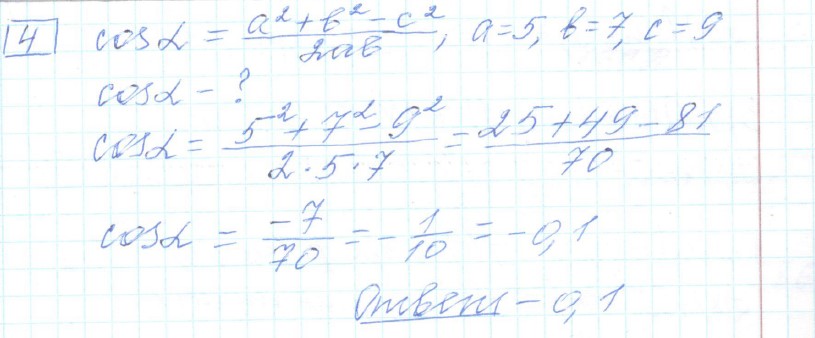 4 cosα = (a² + b² - c²)/(2ab), a=5, b=7, c=9
cosα - ?
cosα = (5² + 7² - 9²)/(2·5·7) = (25 + 49 - 81)/70
cosα = -7/70 = -1/10 = -0,1
Ответ - 0,1